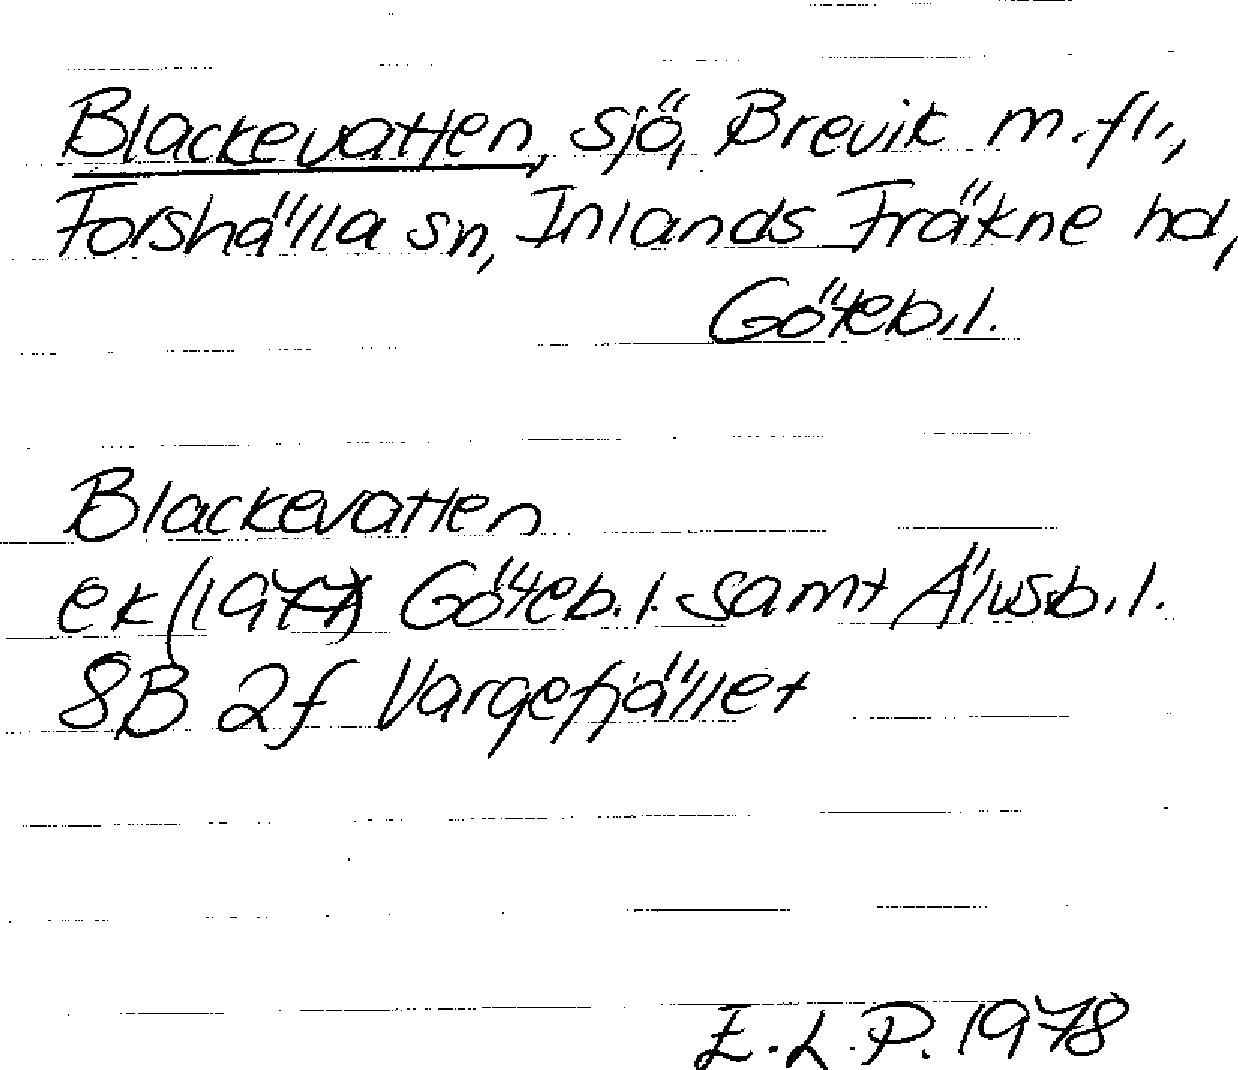 Blackevatten, sjö, Brevik m.fl.,
Forshälla sn, Inlands Fräkne hd,
Göteb.l.
Blackevatten
ek (1977) Göteb.l. samt Älvsb.l.
8B 2f Vargefjället
E.L.P. 1978